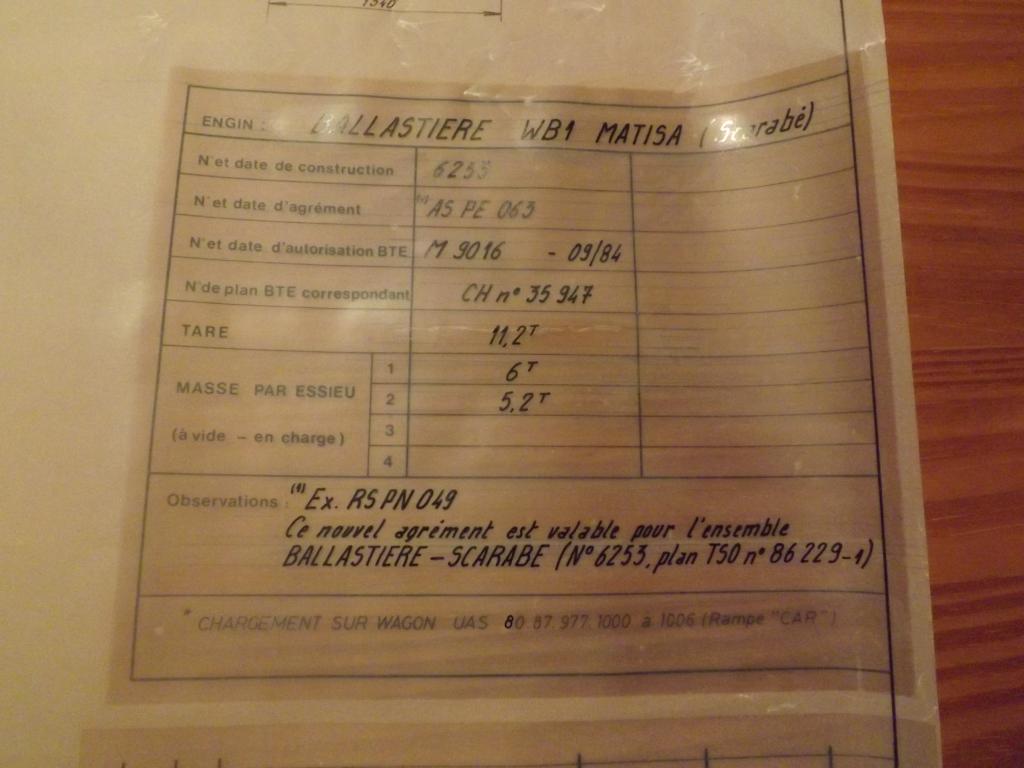 1340
ENGIN : BALLASTIERE WB1 MATISA (Scarabé)
N° et date de construction 6253
N° et date d'agrément (1) AS PE 063
N° et date d'autorisation BTE M 9016 - 09/84
N° de plan BTE correspondant CH n° 35 947
TARE 11,2 T
MASSE PAR ESSIEU
(à vide – en charge)
1 6 T
2 5,2 T
3
4
Observations : (1) Ex. RS PN 049
Ce nouvel agrément est valable pour l'ensemble
BALLASTIERE – SCARABE (N° 6253, plan TSO n° 86 229-1)
* CHARGEMENT SUR WAGON UAS 80.87.977.1000 à 1006 (Rampe "CAR")